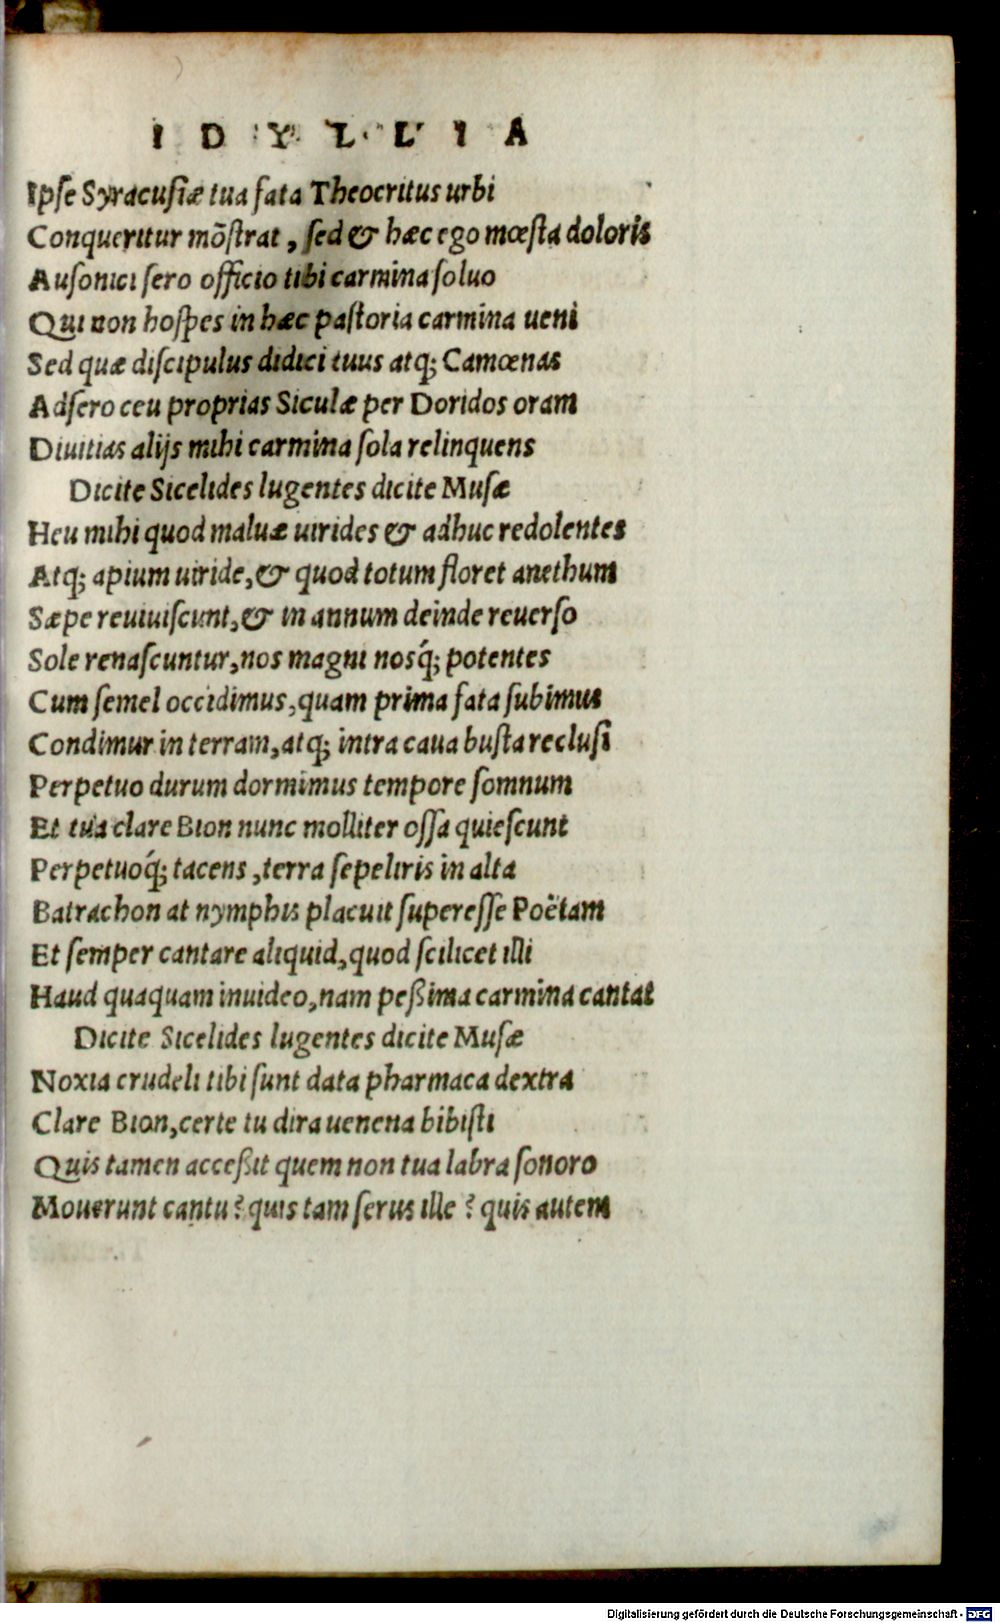 IDYLLIA
Ipſe Syracuſiæ tua fata Theocritus urbi
Conqueritur mõſtrat, ſed & hæc ego mœſta doloris
Auſonici ſero officio tibi carmina ſoluo
Qui non hoſpes in hæc paſtoria carmina ueni
Sed quæ diſcipulus didici tuus atq; Camœnas
Adſero ceu proprias Siculæ per Doridos oram
Diuitias alijs mihi carmina ſola relinquens
Dicite Sicelides lugentes dicite Muſæ
Heu mihi quod maluæ uirides & adhuc redolentes
Atq; apium uiride, & quod totum floret anethum
Sæpe reuiuiſcunt, & in annum deinde reuerſo
Sole renaſcuntur, nos magni nosq́; potentes
Cum ſemel occidimus, quam prima fata ſubimus
Condimur in terram, atq; intra caua buſta recluſi
Perpetuo durum dormimus tempore ſomnum
Et tua clare Bion nunc molliter oſſa quieſcunt
Perpetuoq́; tacens, terra ſepeliris in alta
Batrachon at nymphis placuit ſupereſſe Poëtam
Et ſemper cantare aliquid, quod ſcilicet illi
Haud quaquam inuideo, nam peßima carmina cantat
Dicite Sicelides lugentes dicite Muſæ
Noxia crudeli tibi ſunt data pharmaca dextra
Clare Bion, certe tu dira uenena bibiſti
Quis tamen acceßit quem non tua labra ſonoro
Mouerunt cantu? quis tam ferus ille? quis autem
Digitalisierung gefördert durch die Deutsche Forschungsgemeinschaft - DFG